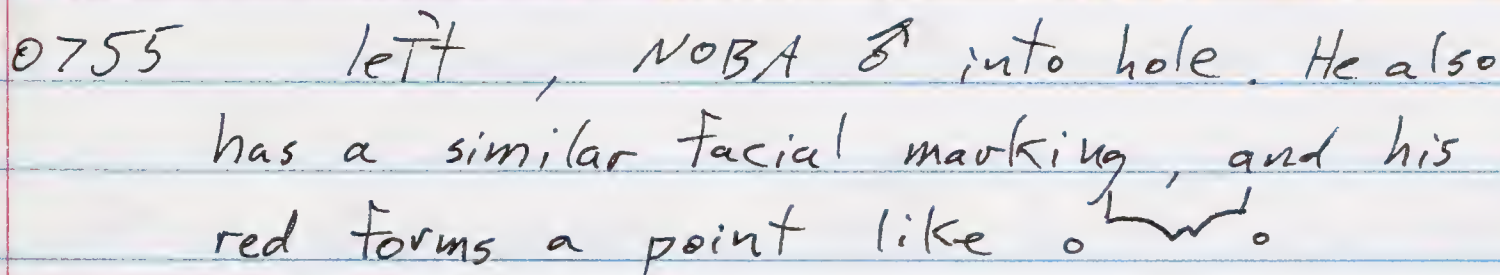 0755 left, NOBA ♂ into hole. He also
has a similar facial marking, and his
red forms a point like